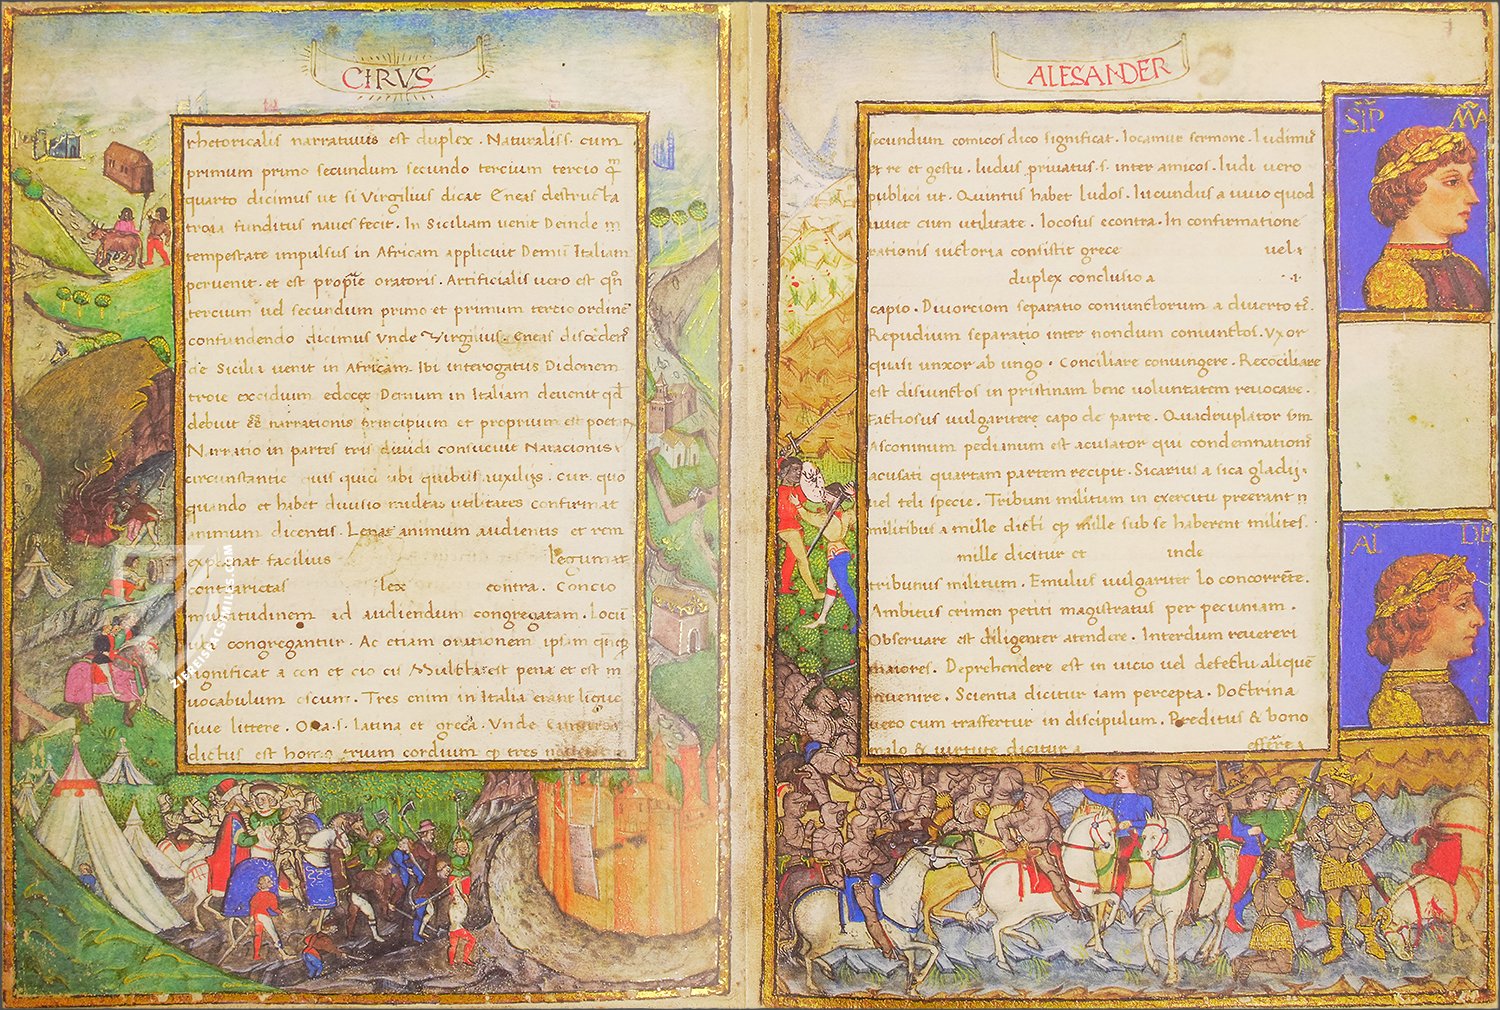 CIRVS
rhetoricalis narratiuus est duplex . Naturalis .s. cum
primum primo secundum secundo tercium tercio
quarto dicimus ut si Virgilius dicat Eneas destructa
troia funditus naues fecit . In Siciliam uenit Deinde
tempestate impulsus in Africam applicuit Demū Italiam
peruenit . et est oratoris . Artificialis uero est
tercium uel secundum primo et primum tercio ordinē
confundendo dicimus Vnde Virgilius . Eneas
de Sicilia uenit in Africam . Ibi interogatus Didonem
troie excidium Demum in Italiam deuenit
debuit narrationis principium et proprium est
Narratio in partes tris diuidi consueuit Naracionis
circunstantie quis quid ubi quibus auxilijs . cur . quo
quando et habet diuisio multas utilitates confirmat
animum dicentis . animum audientis et rem
explanat facilius
contra . Concio
multitudinem ad audiendum congregatam .
congregantur . Ac etiam orationem ipsam
significat a con et cio est pena et est
uocabulum oscum . Tres enim in Italia erant
siue littere . Osca .s. latina et greca . Vnde
dictus est homo trium cordium tres
ALESANDER
secundum comicos dico significat . Iocamur sermone . Ludimus
et re et gestu . ludus priuatus .s. inter amicos . ludi uero
publici ut . Quintus habet ludos . Iucundus a iuuo quod
iuuet cum utilitate . Iocosus econtra . In confirmatione
rationis uictoria consistit grece uel
duplex conclusio a
capio . Diuorcium separatio coniunctorum a diuerto
Repudium separatio inter nondum coniunctos . Vxor
quasi unxor ab ungo . Conciliare coniungere . Recōciliare
est disiunctos in pristinam beneuoluntatem reuocare .
Factiosus uulgaritere capo de parte . Quadruplator
Asconium pedianum est acusator qui condemnationis
acusati quartam partem recipit . Sicarius a sica gladij
uel teli specie . Tribuni militum in exercitu preerant
militibus a mille dicti mille sub se haberent milites .
mille dicitur et inde
tribunus militum . Emulus uulgariter lo concorrēte .
Ambitus crimen petiti magistratus per pecuniam .
Obseruare est diligenter atendere . Interdum reuereri
maiores . Deprehendere est in uicio uel defectu aliquē
inuenire . Scientia dicitur iam percepta . Doctrina
uero cum trasfertur in discipulum . Preditus & bono
malo & uirtute dicitur a